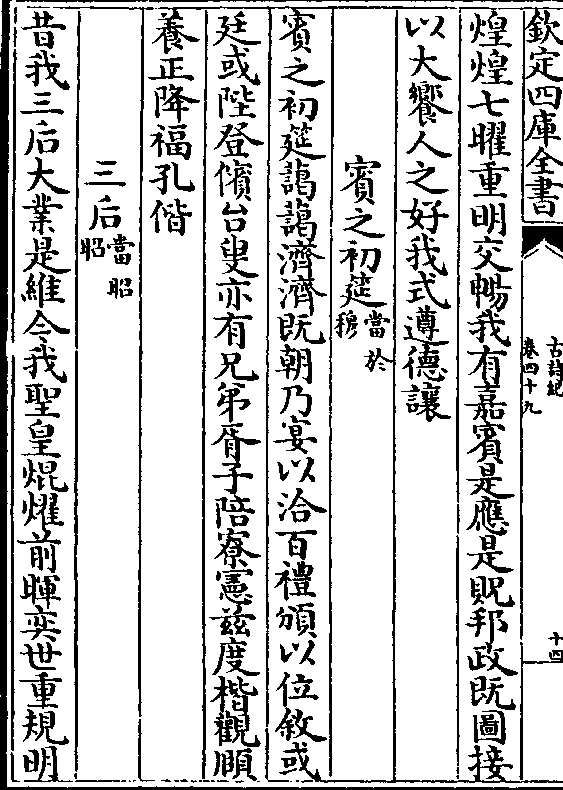 欽定四庫全書
古詩紀
卷四十九
十四
煌煌七曜重明交暢我有嘉賓是應是貺邦政既圖接
以大饗人之好我式遵德讓
賓之初筵當於穆
賓之初筵藹藹濟濟既朝乃宴以洽百禮頒以位敘或
廷或陛登儐台叟亦有兄弟胥子陪寮憲茲度楷觀頤
養正降福孔偕
三后當昭昭
昔我三后大業是維今我聖皇焜燿前暉奕世重規明